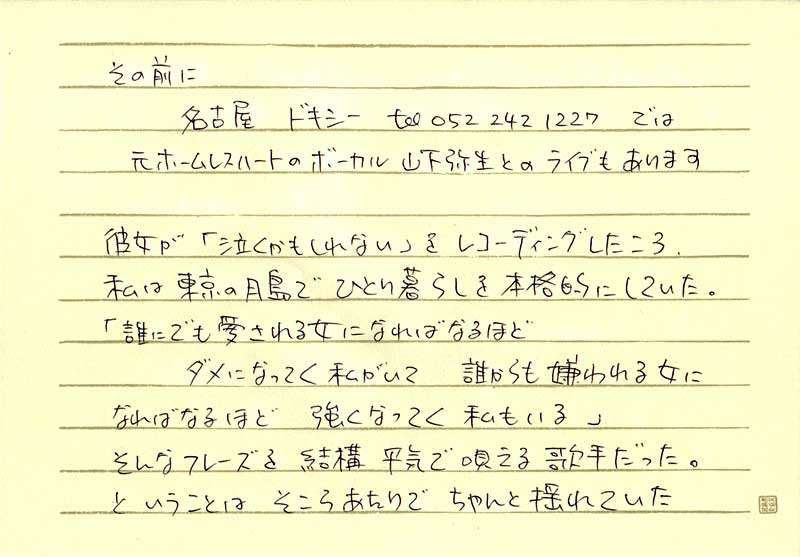 その前に
名古屋 ドキシー tel 052 242 1227 では
元ホームレスハートのボーカル 山下弥生とのライブもあります
彼女が「泣くかもしれない」を レコーディングしたころ、
私は東京の月島で ひとり暮らしを 本格的にしていた。
「誰にでも愛される女になればなるほど
ダメになってく 私がいて 誰からも嫌われる女に
なればなるほど 強くなってく 私もいる」
そんなフレーズを 結構 平気で唄える 歌手だった。
ということは そこらあたりで ちゃんと揺れていた